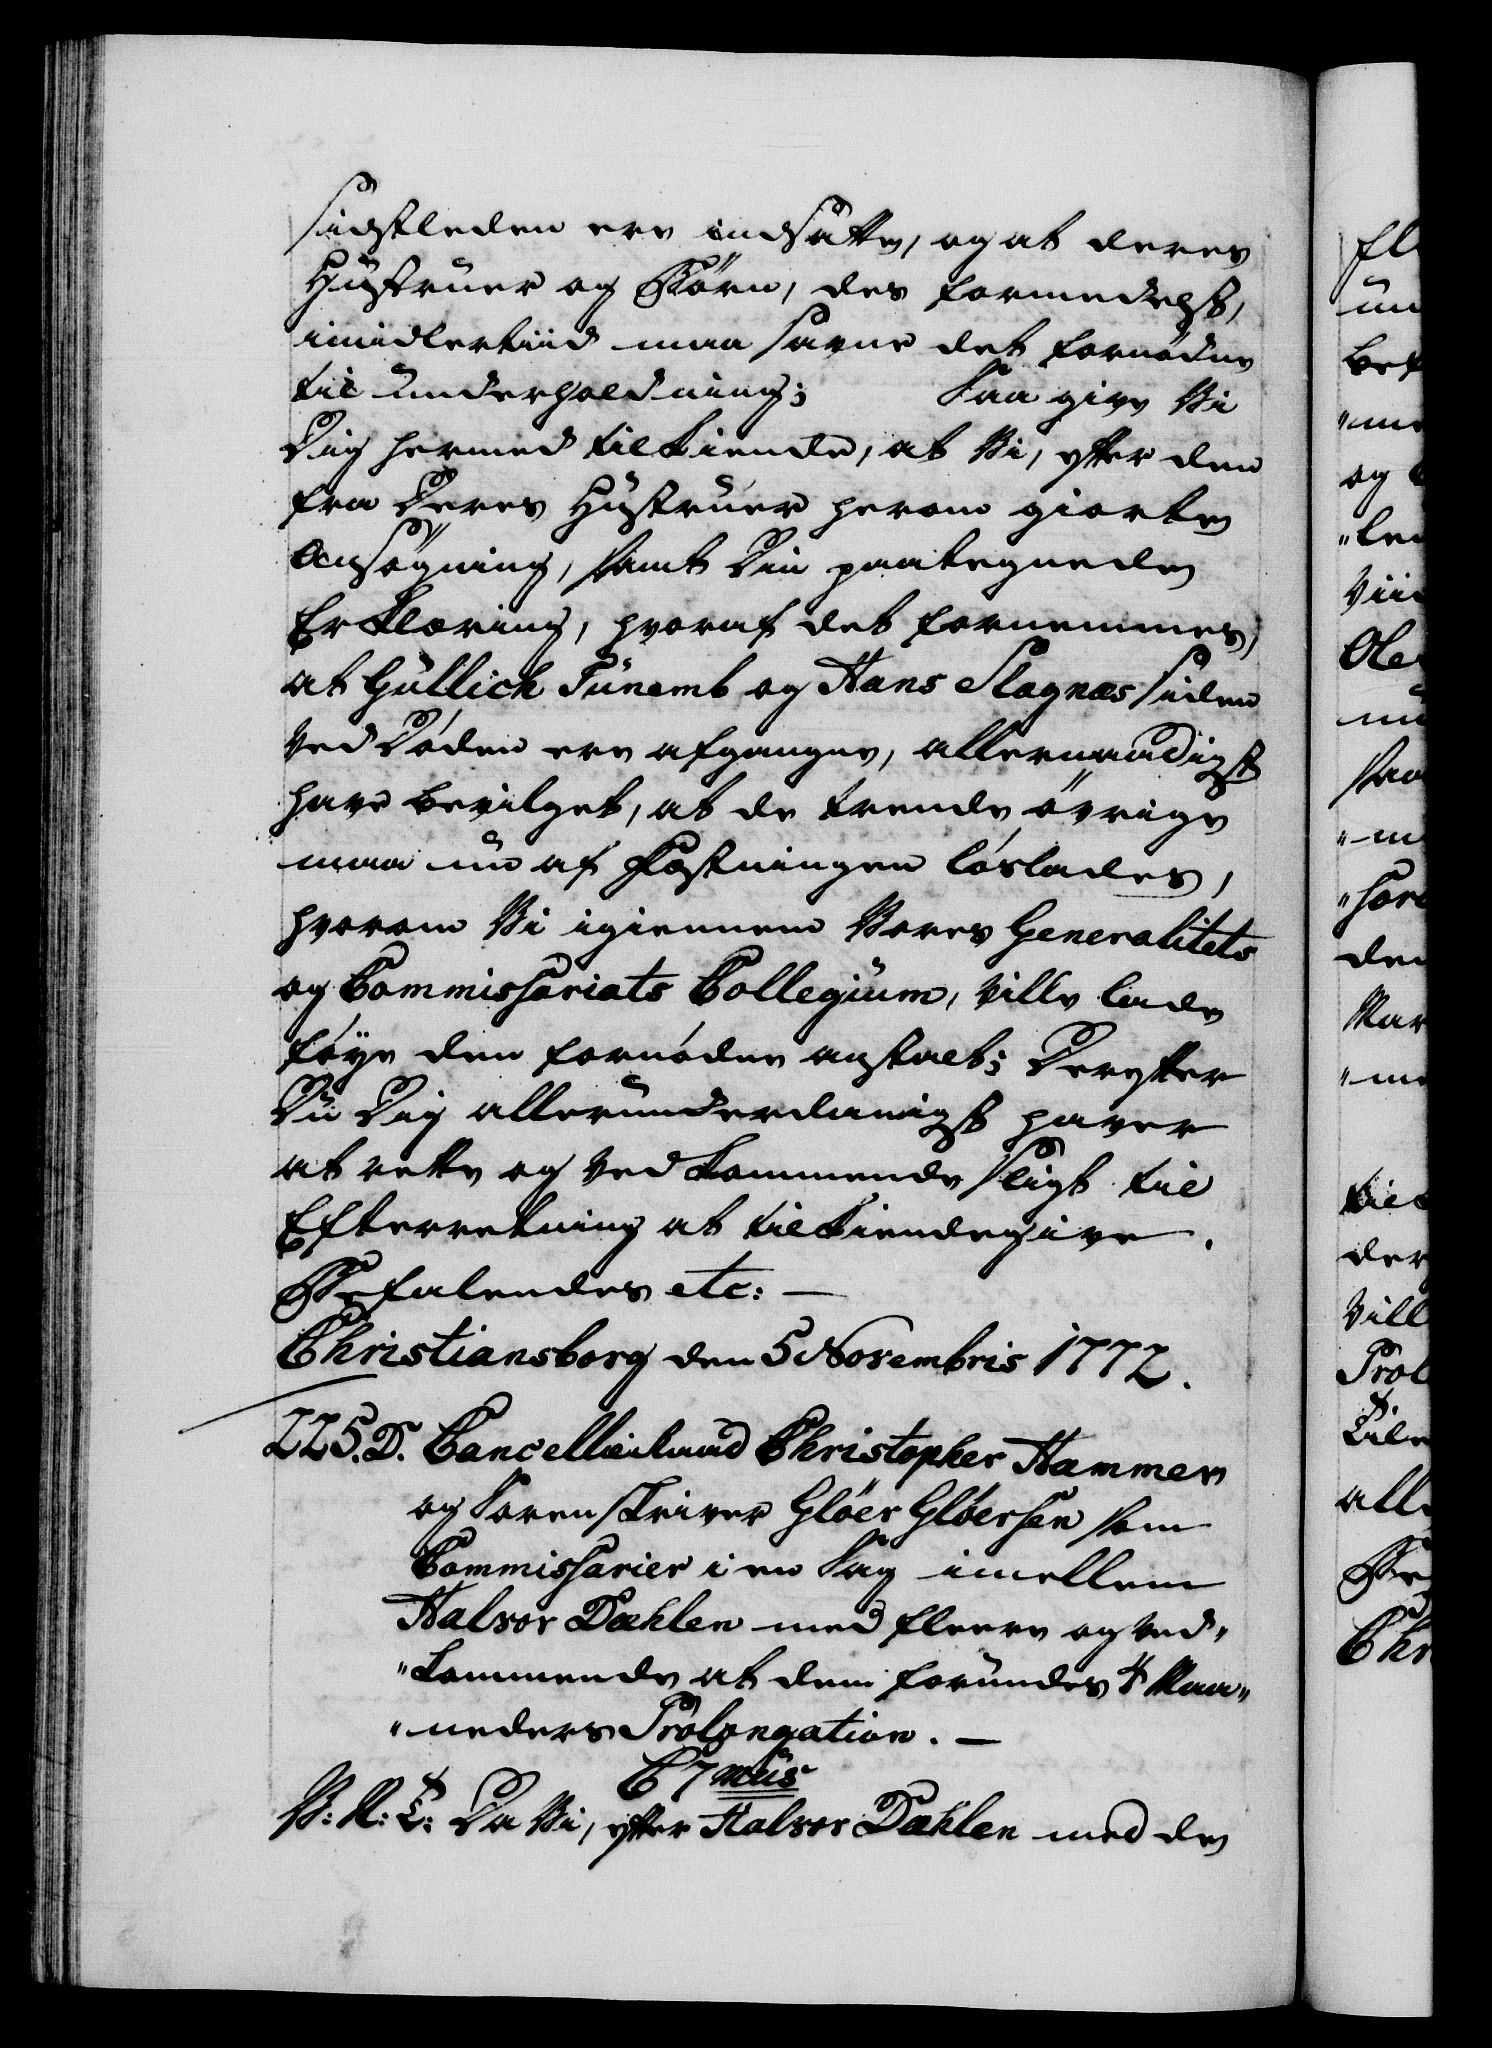 sidstleden ere indsatte, og at deres
Hustruer og Børn, des formedelst,
imidlertiid maa savne det fornødne
til Underholdning; Saa give Vi
Dig hermed tilkiende, at Vi, efter den
fra Deres Hustruer herom giorte
Ansøgning, samt Din paategnede
Erklæring, hvoraf det fornemmes,
at Gullich Tunemb og Hans Slagnæs siden
ved Døden ere afgangne, allernaadigst
have bevilget, at de trende øvrige
maa nu af Fæstningen løslades,
hvorom Vi igiennem Vores Generalitets
og Commissariats Collegium, ville lade
føye den fornødne anstalt; Derefter
Du Dig allerunderdanigst haver
at rette og vedkommende sligt til
Efterretning at tilkiendegive.
Befalendes etc: —
Christiansborg den 5 Novembris 1772.
225. D. Cancellieraad Christopher Hammer
og Sorenskriver Gløer Gløersen som
Commissarier i en Sag imellem
Halvor Dæhlen med fleere og ved„
„kommende at dem forundes 4 Maa„
„neders Prolongation. —
C 7mus
V: A: T: Da Vi, efter Halvor Dæhlen med de